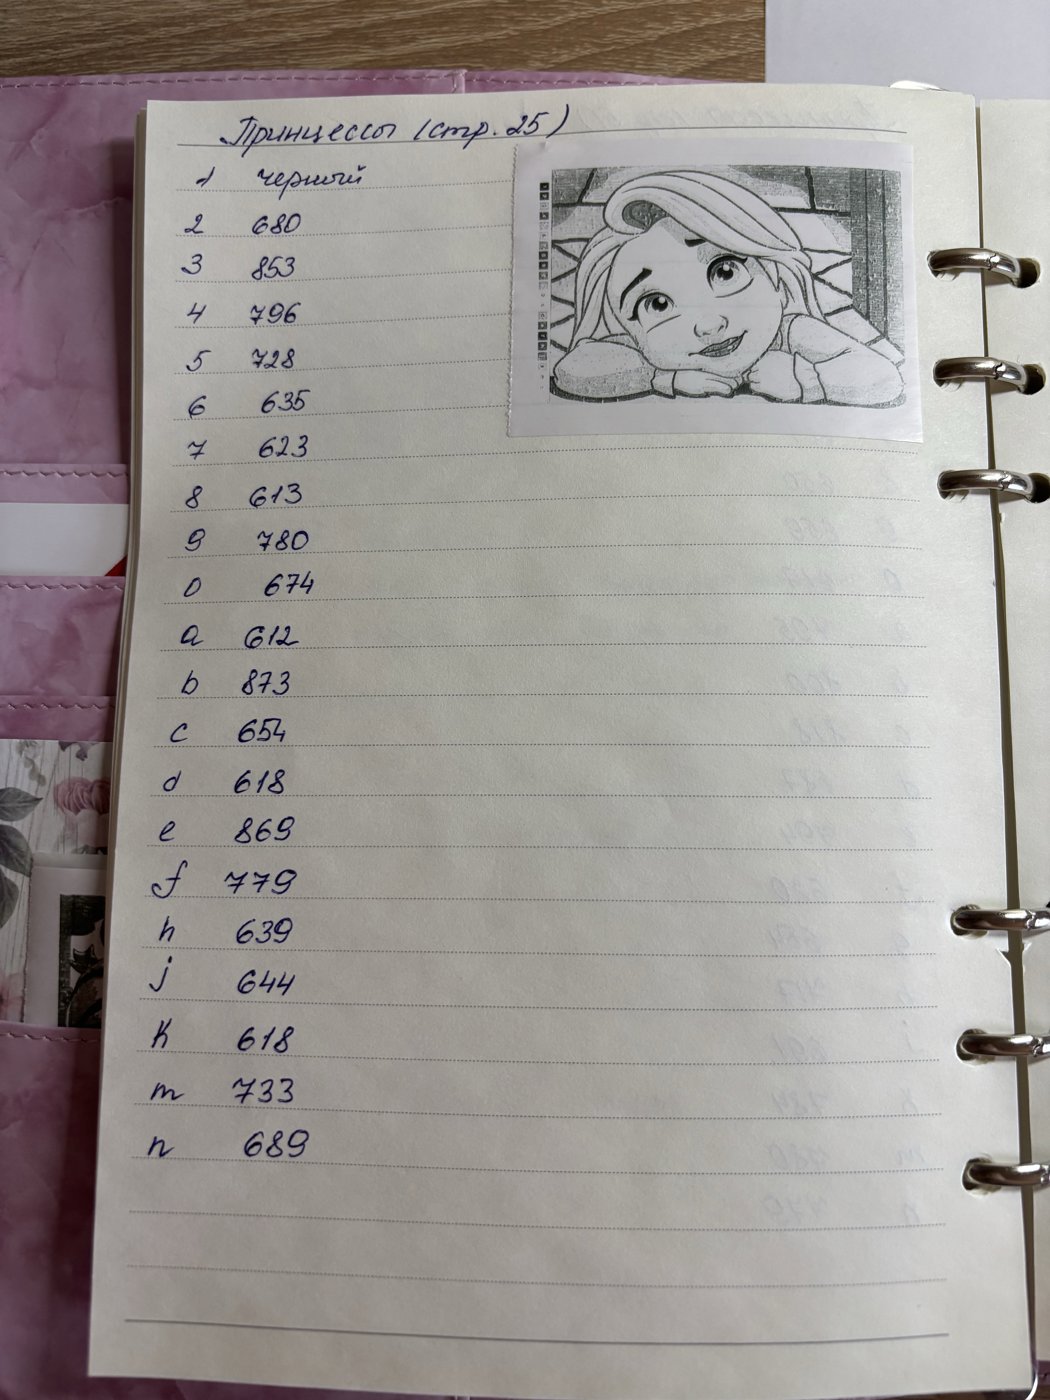 Принцессы (стр. 25)
1 черный
2 680
3 853
4 796
5 728
6 635
7 623
8 613
9 780
0 674
a 612
b 873
c 654
d 618
e 869
f 779
h 639
j 644
k 618
m 733
n 689